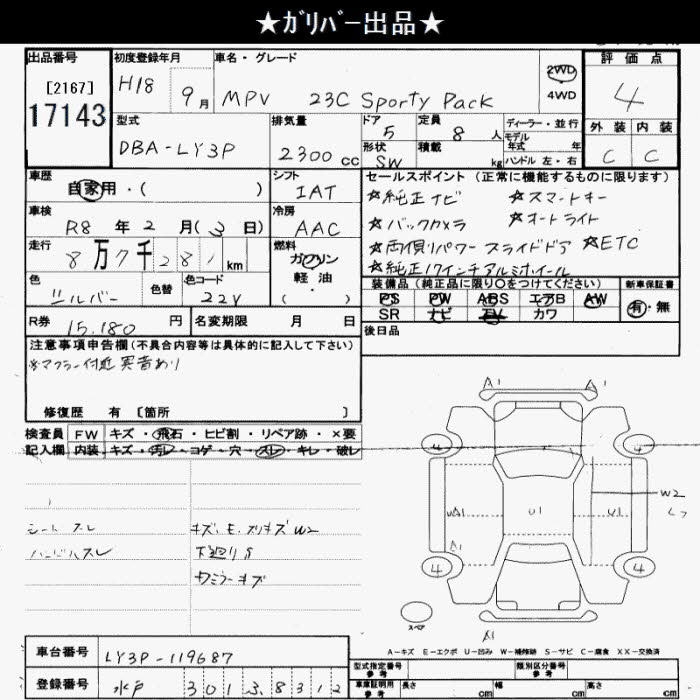 ★ｶﾞﾘﾊﾞｰ出品★
出品番号
[2167]
17143
初度登録年月
H18 9月
車名・グレード
MPV 23C Sporty Pack
2WD
4WD
評価点
4
外装 内装
C C
型式
DBA-LY3P
排気量
2300 cc
ドア
5
定員
8 人
形状
SW
積載
kg
ディーラー・並行
モデル
年式 年
ハンドル 左・右
車歴
自家用・( )
シフト
IAT
車検
R8 年 2 月(3 日)
冷房
AAC
走行
8万7千281 km
燃料
ガソリン
軽油
・( )
色
シルバー
色替
色コード
22V
R券
15.180 円
名変期限 月 日
セールスポイント (正常に機能するものに限ります)
☆純正ナビ ☆スマートキー
☆バックカメラ ☆オートライト
☆両側パワースライドドア ☆ETC
☆純正17インチアルミホイール
装備品 (純正品に限り○をつけてください)
PS PW ABS エアB AW
SR ナビ TV カワ
新車保証書
有・無
後日品
注意事項申告欄(不具合内容等は具体的に記入して下さい)
※マフラー付近異音あり
修復歴 有 [箇所 ]
検査員
記入欄
FW キズ・飛石・ヒビ割・リペア跡・×要
内装 キズ・汚レ・コゲ・穴・スレ・キレ・破レ
シートスレ
ハンドルスレ
キズ、E、スリキズW2
下廻りS
カミラーキズ
A1 A1
4 4
W2
A1 U1 U1
A1
4 4
A1
スペア
A-キズ E-エクボ U-凹み W-補修跡 S-サビ C-腐食 XX-交換済
車台番号
LY3P-119687
登録番号
水戸 301 3 8312
型式指定番号
参考
類別区分番号
参考
車庫証明用
参考
長さ cm
幅 cm
高さ cm